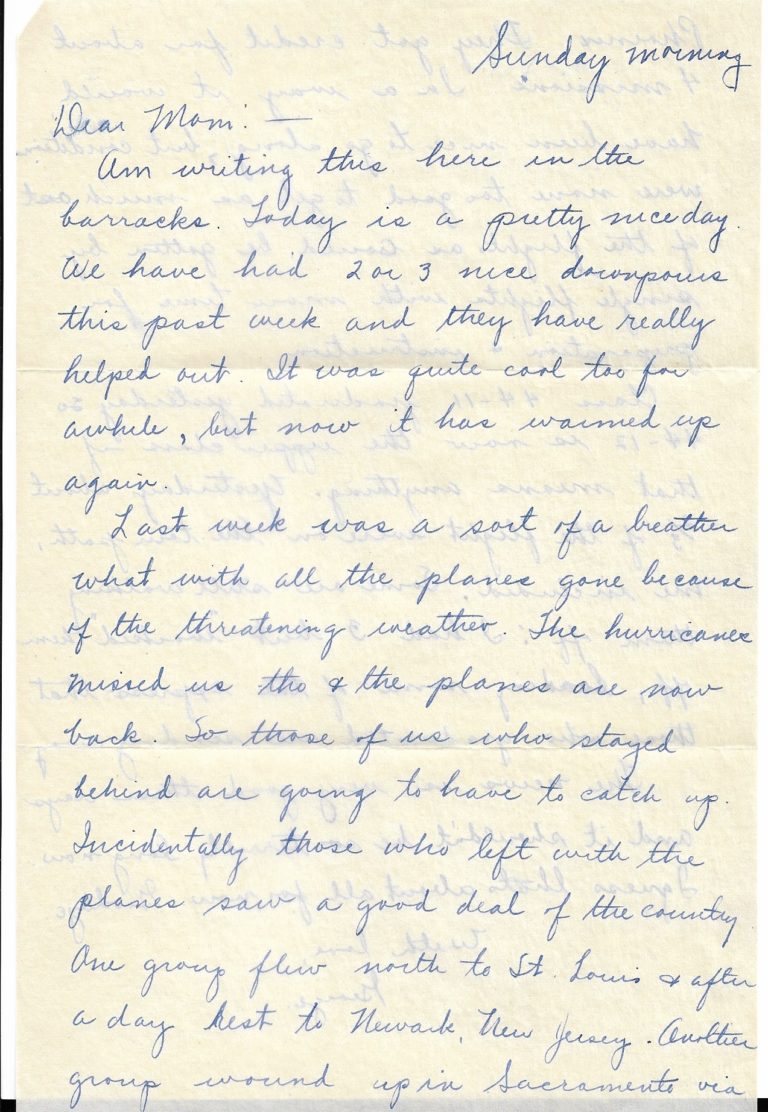 Sunday morning
Dear Mom: —
Am writing this here in the
barracks. Today is a pretty nice day.
We have had 2 or 3 nice downpours
this past week and they have really
helped out. It was quite cool too for
awhile, but now it has warmed up
again.
Last week was a sort of a breather
what with all the planes gone because
of the threatening weather. The hurricane
missed us tho & the planes are now
back. So those of us who stayed
behind are going to have to catch up.
Incidentally those who left with the
planes saw a good deal of the country
One group flew north to St. Louis & after
a day rest to Newark, New Jersey. Another
group wound up in Sacramento via